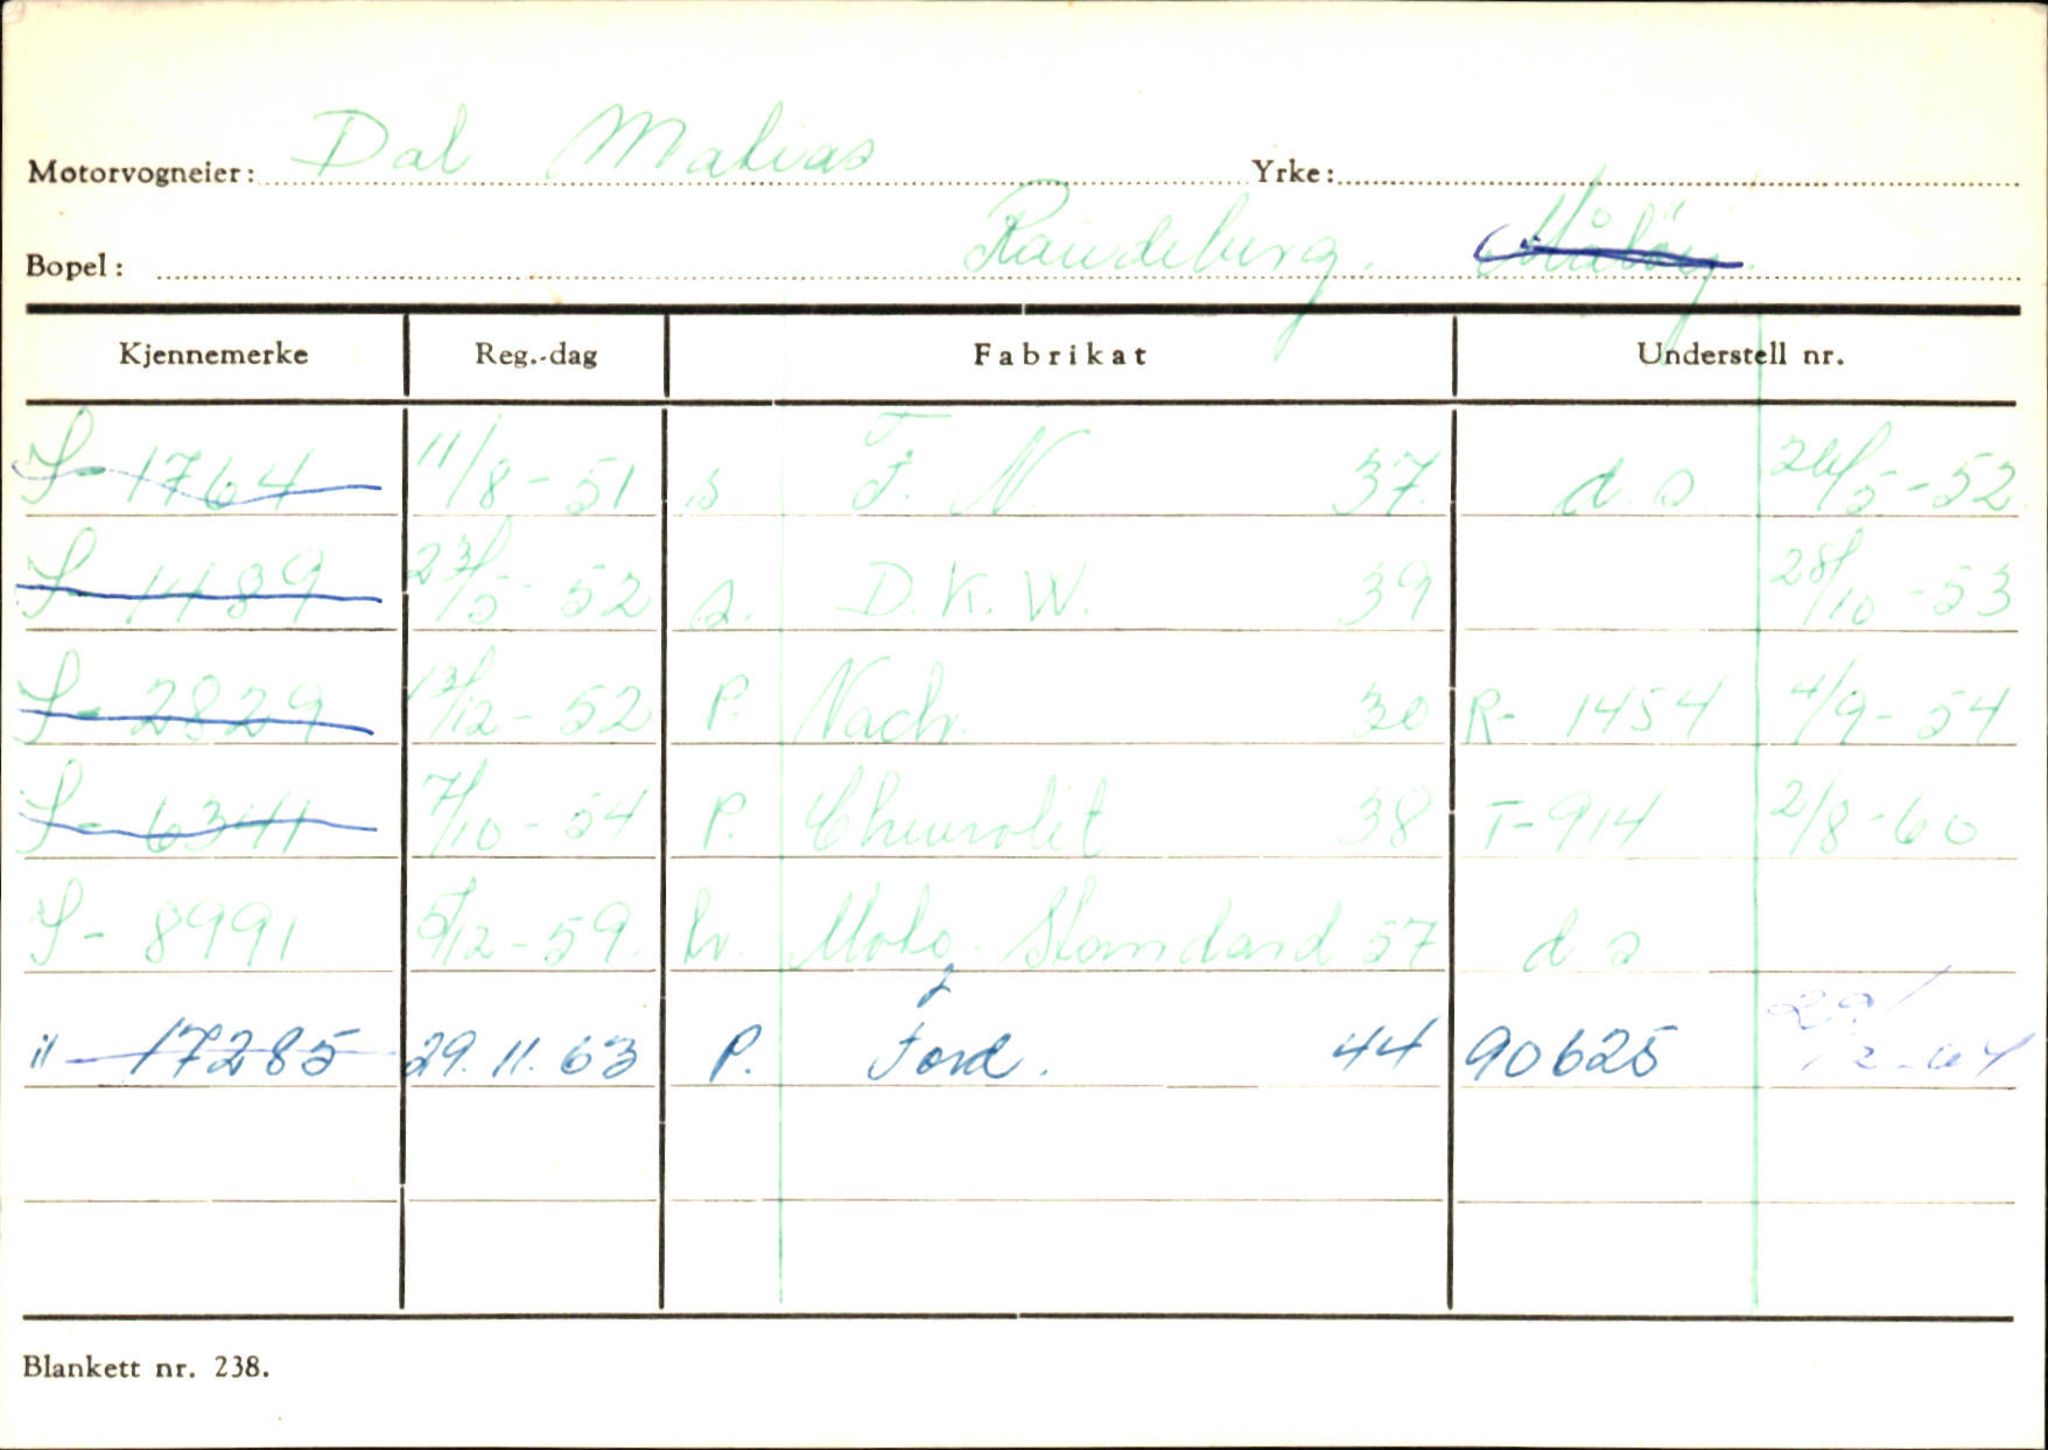 Motorvogneier: Dal Matias Yrke:
Bopel: Raudeberg. Måløy.
Kjennemerke Reg.-dag Fabrikat Understell nr.
S- 1764 11/8-51 s. F. N. 37. d.s 26/5-52.
S- 1489 23/5-52 s. D.K.W. 39 28/10-53
S- 2829 13/12-52 P. Nach. 30 R- 1454 4/9-54
S- 6341 7/10-54 P. Chevrolet 38 T-914 2/8-60
S- 8991 5/12-59. Lv. Moto Standard 57 d s
" 17285 29.11.63 P. Ford. 44 90625 29/12-64
Blankett nr. 238.